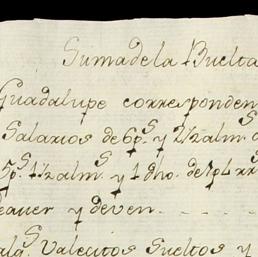 Suma de la Buelta
Guadalupe corresponden
Salarios de 6 p.s y 2 1/2 alm.s
5 p.s 1 1/2 alm.s y 1 dho. de 7 p
eauer y deven . . . .
Valecitos Sueltos y